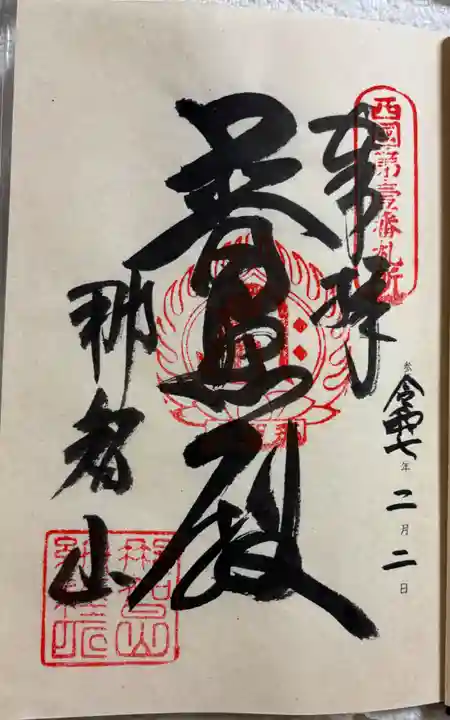 西國第壹番札所
奉拝
令和七年二月二日
普照殿
那智山
那智山